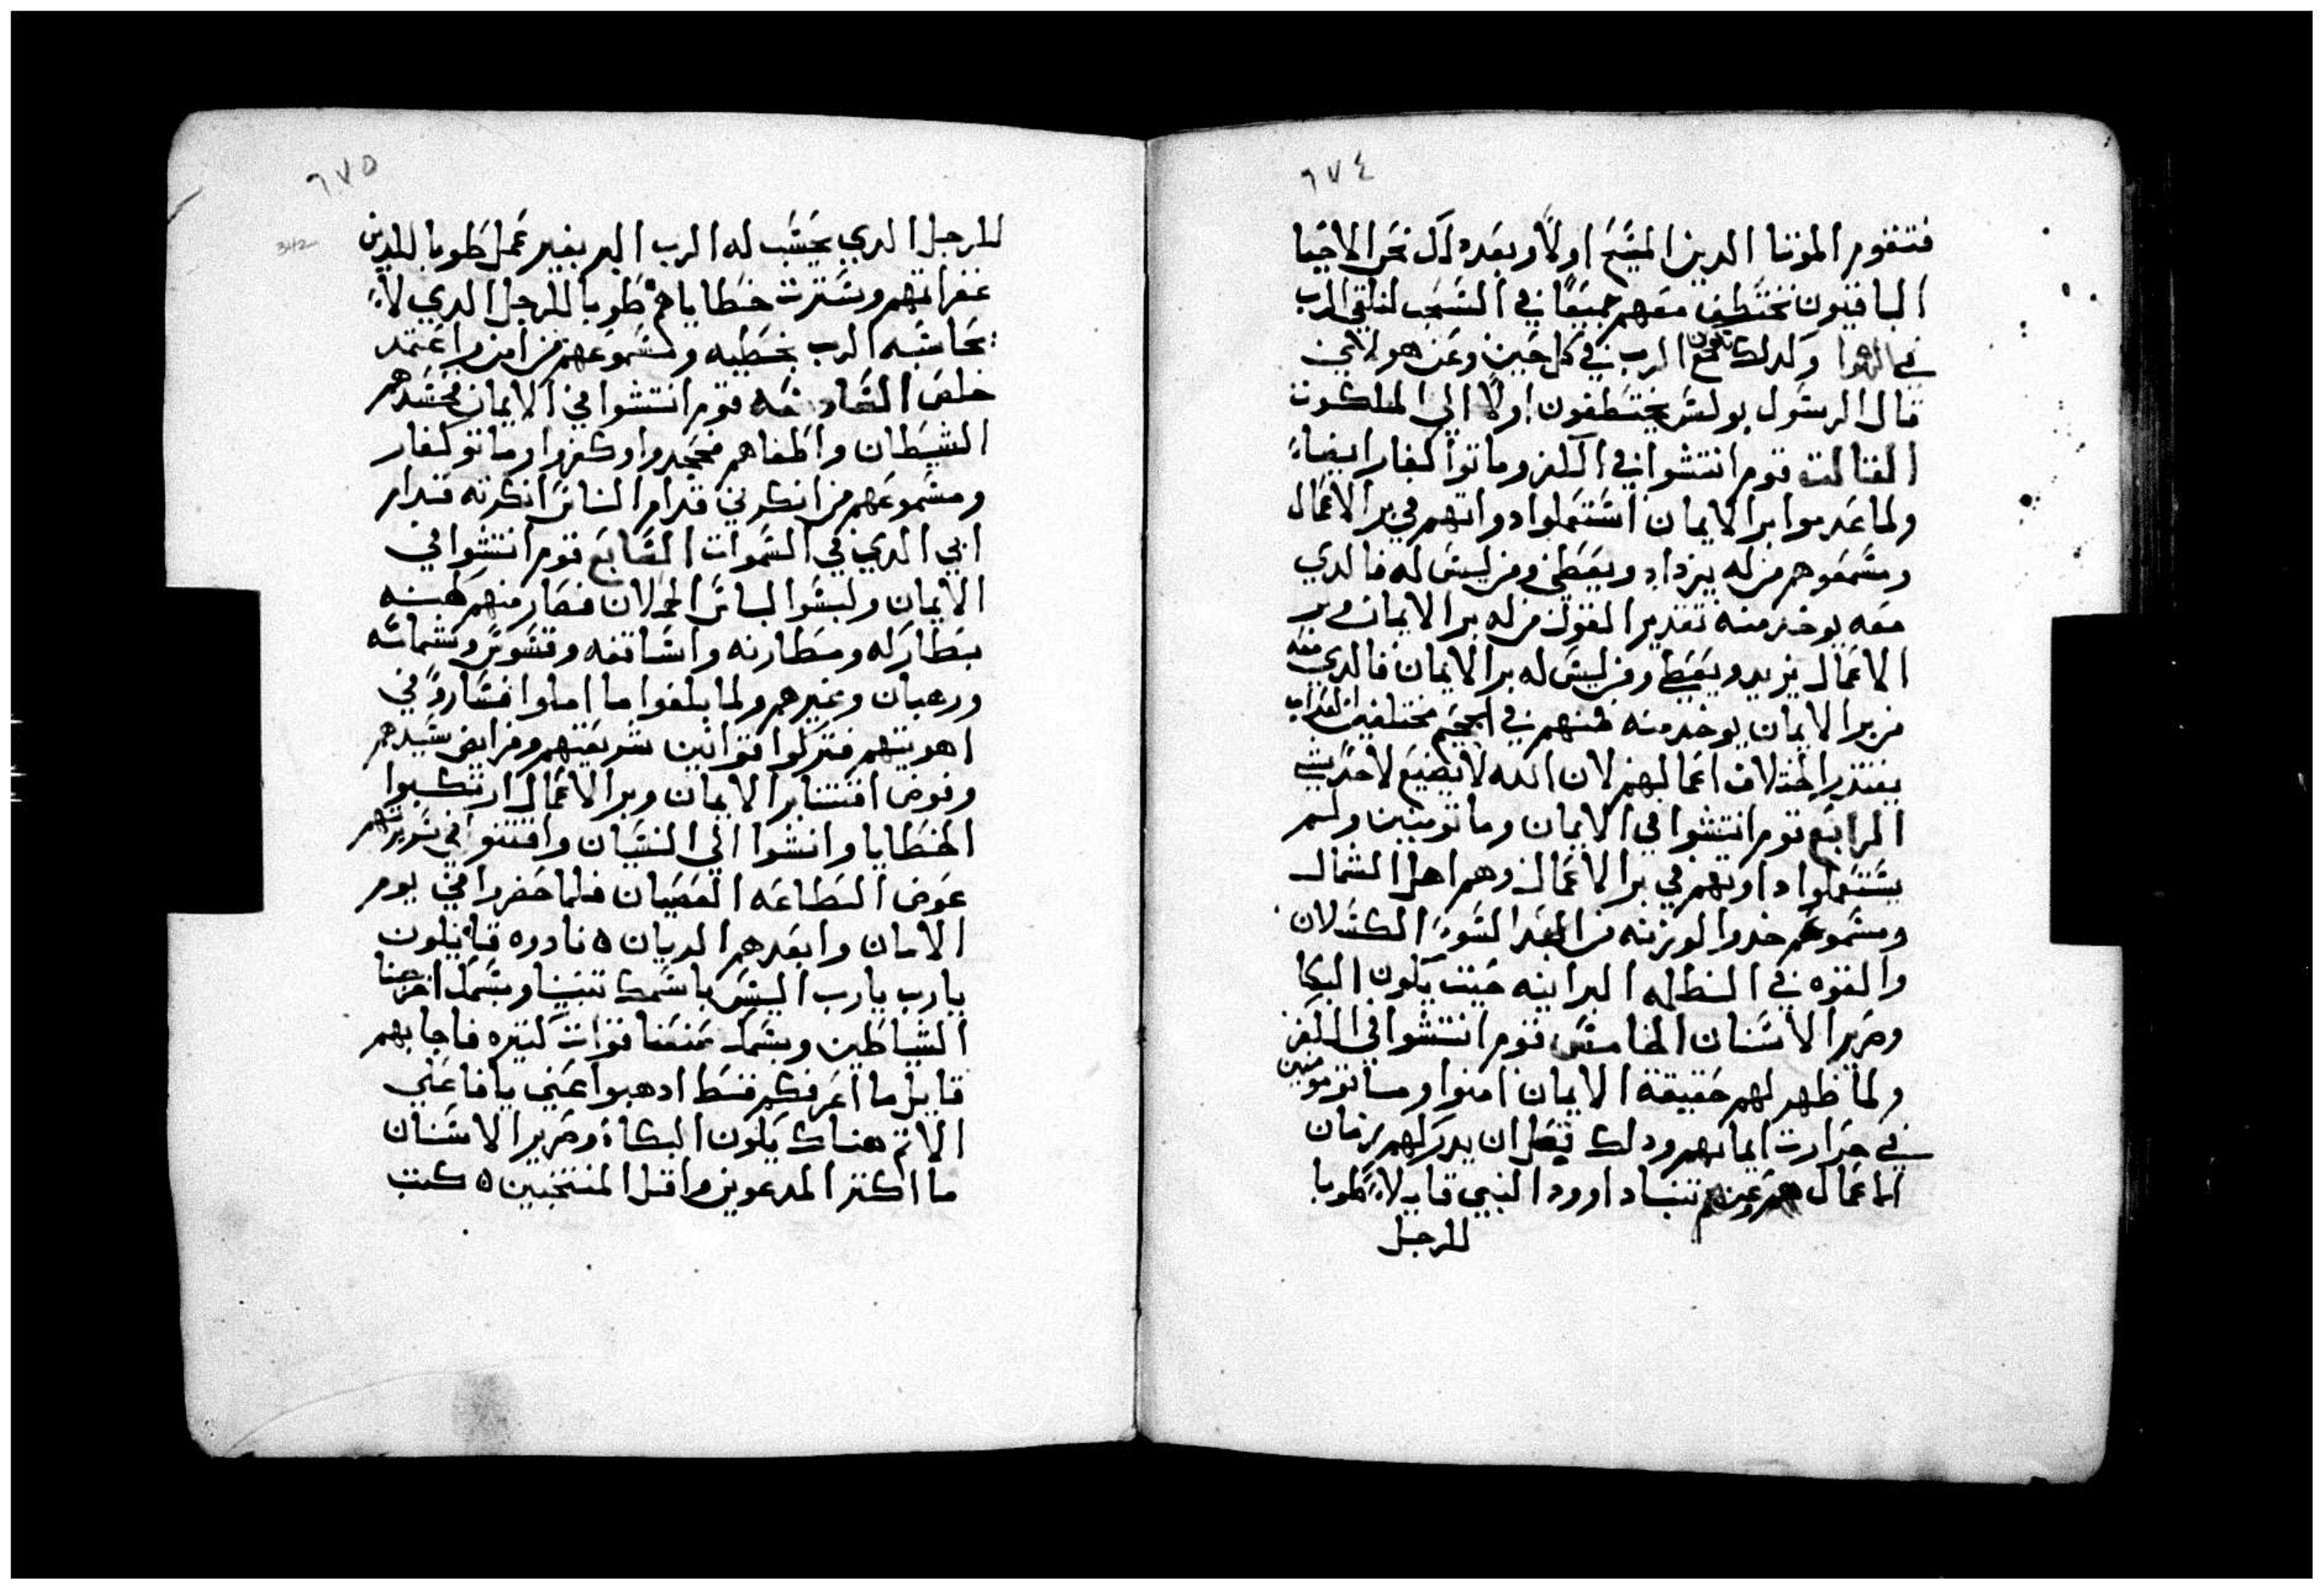 ٦٧٤
فتقوم الموتا الدين المسيح اولاً وبعده لك نحن الاحيا
الباقيون نختطف معهم جميعاً في السحب لنلقي الرب
في الهوا ولدلك نكون مع الرب في كل حين وعن هولاي
قال الرسول بولس يختطفون اولاً الي الملكوت
التالت قوم انتشوا في الكفر وماتوا كفار ايضاً
ولما عدموا بر الايمان استعملوا دواتهم في بر الاعمال
ومسمعوهم من له يزداد ويعطي ومن ليس له فالدي
معه يوخد منه تقدير القول من له بر الايمان وبر
الاعمال يزيد ويعطي ومن ليس له بر الايمان فالدي معه
من بر الايمان يوخد منه فمنهم في الجحيم مختلفين العداب
يقتدر اختلاف اعمالهم لان الله لا يضيع لاحد شي
الرابع قوم انتشوا في الايمان وماتو مومنين ولم
يستعملوا داوتهم في بر الاعمال وهم اهل الشمال
ومسموعهم خدوا الوزنه من العبد السوء الكسلان
والقوه في الظله البرانيه حيت يكون البكا
وصرير الاسنان الخامس قوم انتشوا في الكفر
ولما ظهر لهم حقيقة الايمان امنوا وماتو مومنين
في حرارت ايمانهم ودلك قبل ان يدركهم زمان
الاعمال وعنهم تنبا داوود النبي قايلاً طوبا
للرجل
٦٧٥
342
للرجل الدي يحسب له الرب البر بغير عمل طوبا للدين
غفراتهم وسترت خطاياهم طوبا للرجل الدي لا
يحاسبه الرب بخطيه ومسموعهم من امن واعتمد
خلص السادسه قوم انتشوا في الايمان فحسدهم
الشيطان واطغاهم فجحدوا وكفروا وماتو كفار
ومسموعهم من انكرني قدام الناس انكرته قدام
ابي الدي في السموات السابع قوم انتشوا في
الايمان ولبسوا لباس الحملان فصار منهم كهنه
بطاركه ومطارنه واساقفه وقسوس وشمامسه
ورهبان وغيرهم ولما بلغوا ما املوا فساروا في
اهويتهم فتركوا قوانين شريعتهم وفرايض سيدهم
وعوض اقتنا بر الايمان وبر الاعمال ارتكبوا
الخطايا وانشوا الي النسيان واقتنوا في سريرتهم
عوض الطاعه العصيان فلما حضروا في يوم
الامان وابعدهم الديان ه نادوه قايلون
يارب يارب اليس باسمك تنبينا وبسمك اخرجنا
الشياطين وبسمك صنعنا قوات كتيره فاجابهم
قايل ما اعرفكم قط ادهبوا عني يا فاعلي
الاتم هناك يكون البكاء وصرير الاسنان
ما اكتر المدعوين واقل المنتخبين ه كتب